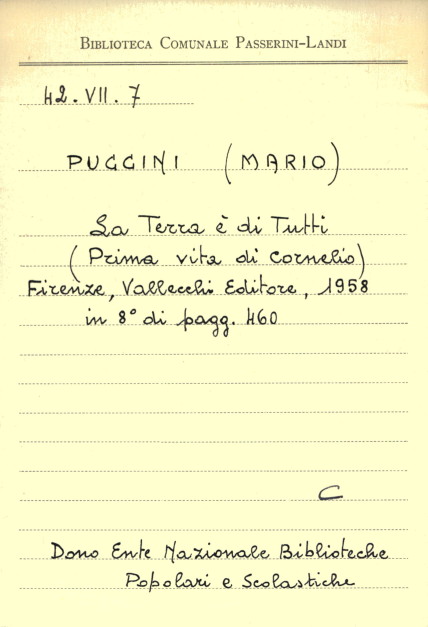 Biblioteca Comunale Passerini-Landi
42.VII.7
PUGGINI (MARIO)
La Terra è di Tutti
(Prima vita di Cornelio)
Firenze, Vallecchi Editore, 1958
in 8° di pagg. 460
C
Dono Ente Nazionale Biblioteche
Popolari e Scolastiche